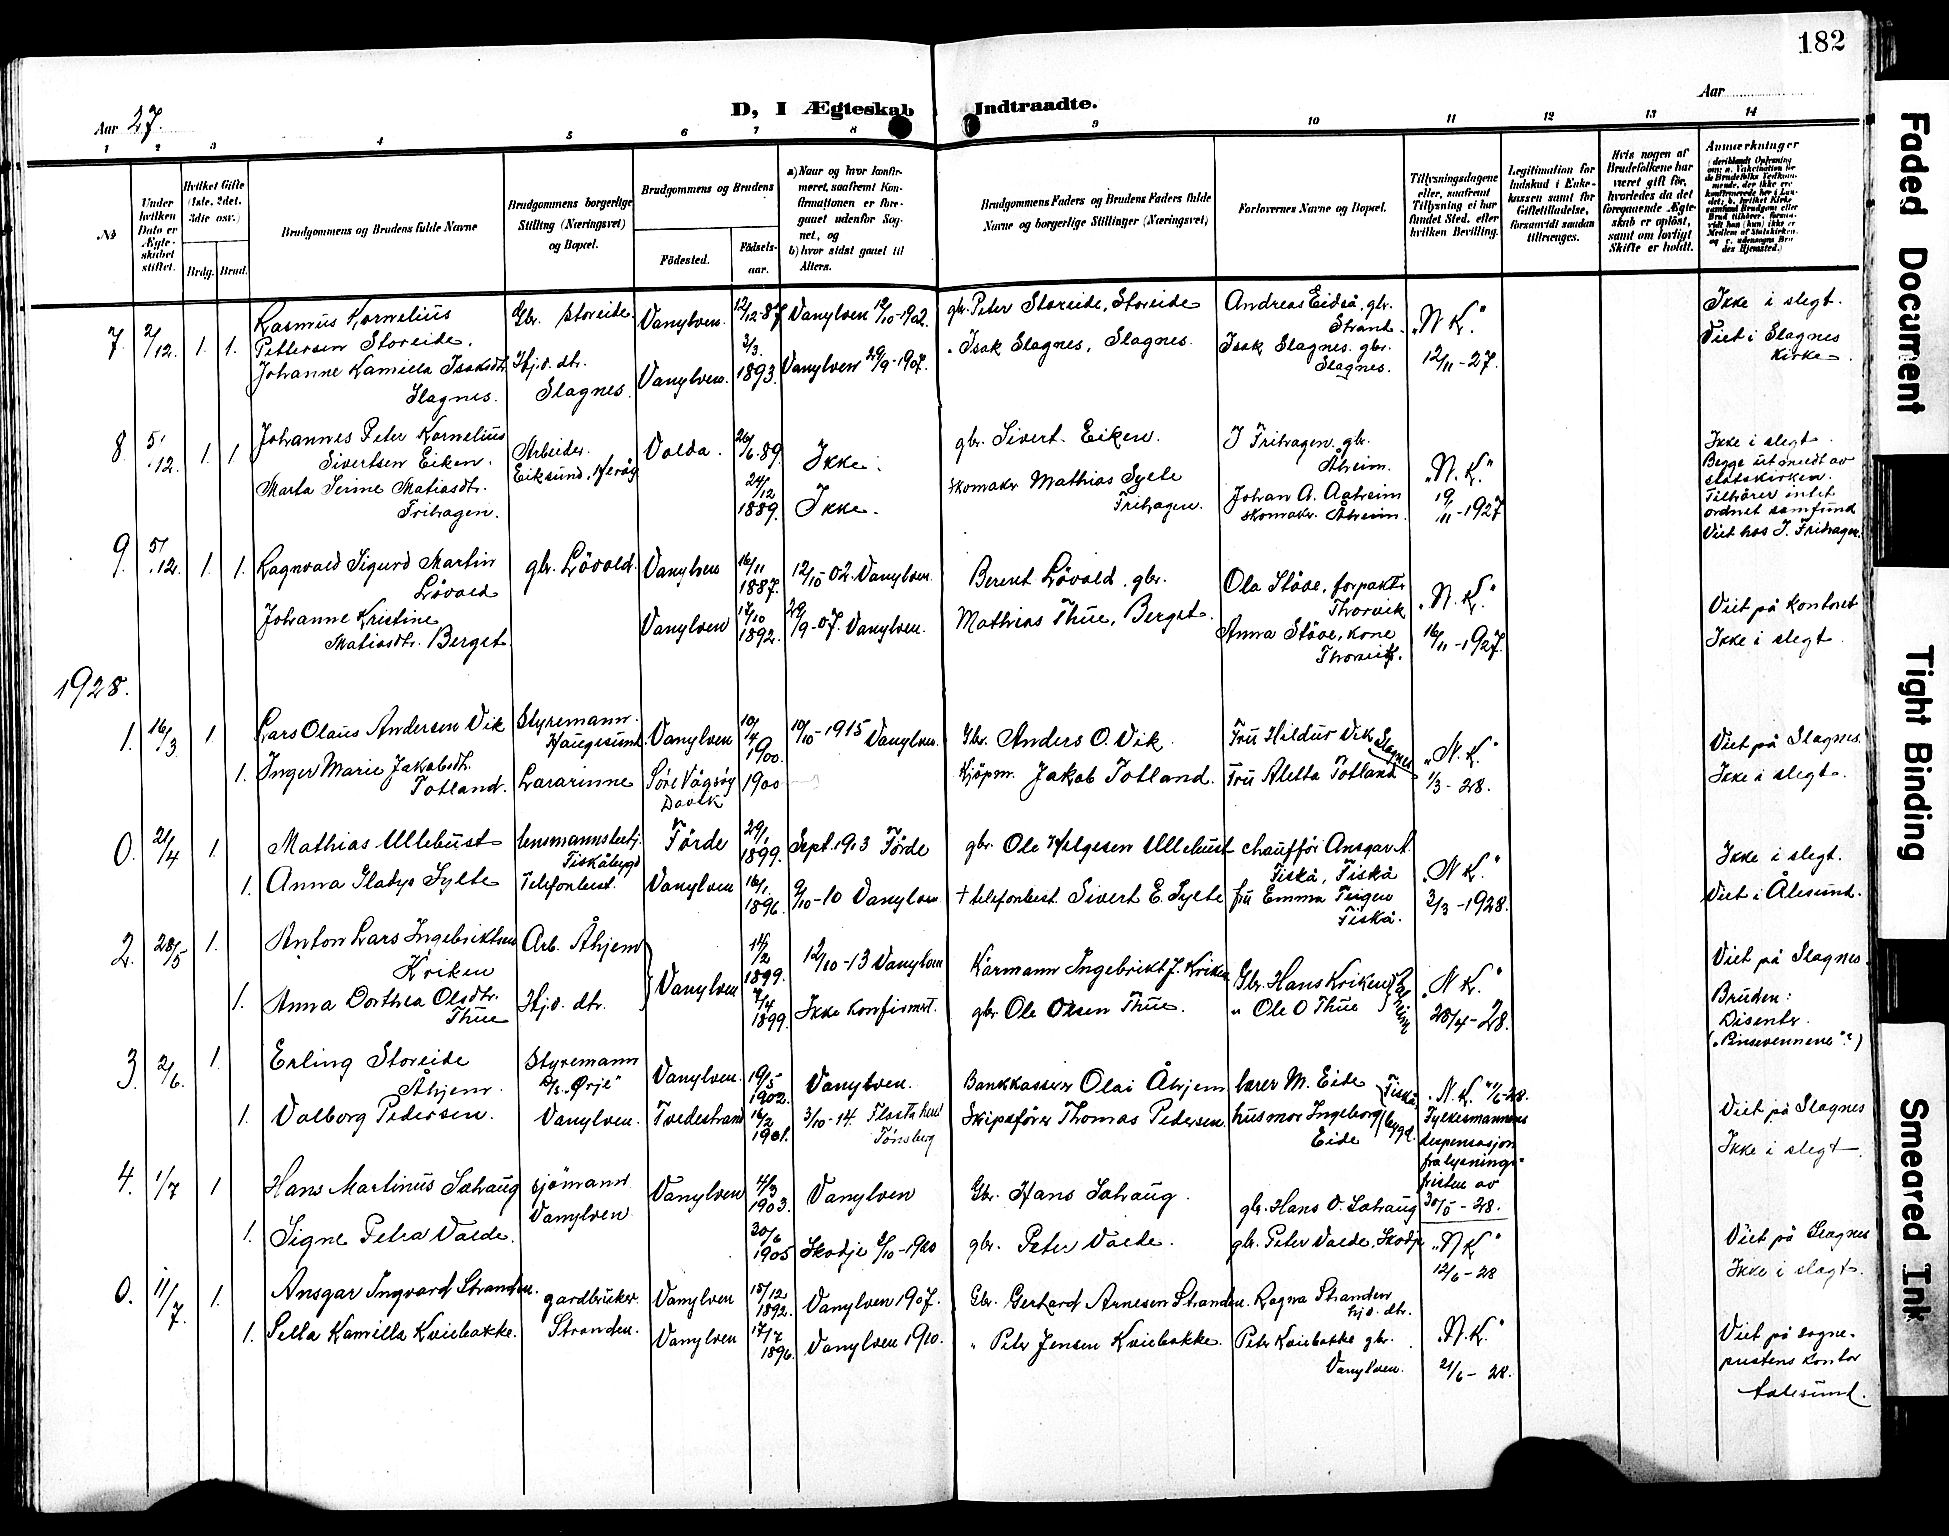 182
D, I Ægteskab Indtraadte.
Aar 27.
Aar
1 2 3 4 5 6 7 8 9 10 11 12 13 14
No
Under hvilken Dato er Ægteskabet stiftet.
Hvilket Gifte (1ste, 2det, 3die osv.)
Brdg. Brud.
Brudgommens og Brudens fulde Navne
Brudgommens borgerlige Stilling (Næringsvei) og Bopæl.
Brudgommens og Brudens
Fødested.
Fødselsaar.
a) Naar og hvor konfirmeret, saafremt Konfirmationen er foregaaet udenfor Sognet, og
b) hvor sidst gaaet til Alters.
Brudgommens Faders og Brudens Faders fulde Navne og borgerlige Stillinger (Næringsvei)
Forlovernes Navne og Bopæl.
Tillysningsdagene eller, saafremt Tillysning ei har fundet Sted, efter hvilken Bevilling.
Legitimation for Indskud i Enkekassen samt for Giftetilladelse, forsaavidt saadan tiltrænges.
Hvis nogen af Brudefolkene har været gift før, hvorledes da det foregaaende Ægteskab er opløst, samt om lovligt Skifte er holdt.
Anmærkninger
7. 2/12. 1. 1. Rasmus Kornelius Gbr. Storeide. Vanylven. 12/12-87 Vanylven 12/10-1902. gbr. Peter Storeide, Storeide Andreas Eidså, gbr. "N K." Ikke i slegt.
Pettersen Storeide. Strand. Viet i Slagnes
Johanne Kamilla Isaksdtr. Hj.v. dtr. Vanylven. 3/3. 1893. Vanylven 29/9-1907. " Isak Slagnes, Slagnes. Isak Slagnes. gbr. 12/11-27. kirke.
Slagnes. Slagnes. Slagnes.
8. 5/12. 1. 1. Johannes Peter Kornelius Arbeider. Volda. 26/6.89. Ikke. gbr. Sivert Eiken. J Frihagen. gbr. "N. K." Ikke i slegt.
Sivertsen Eiken. Eiksund, Herøy Åheim. Begge utmeldt av
Marta Serine Matiasdtr. 24/12 1889. Ikke. skomakr Mathias Sylte Johan A. Aaheim 19/11-1927 statskirken.
Frihagen. Frihagen. skomakr. Åheim. Tilhører intet
ordnet samfund
Viet hos J. Frihagen.
9. 5/12. 1. 1. Ragnvald Sigurd Martin gbr. Løvold. Vanylven 16/11 1887. 12/10-02. Vanylven. Berent Løvold, gbr. Ola Støve, forpaktr "N. K."
Løvold Thorvik Viet på kontoret
Johanne Kristine Vanylven 17/10 1892. 29/9-07. Vanylven. Mathias Thue, Berget. Anna Støve, kone 16/11-1927. Ikke i slegt.
Matiasdtr. Berget. Thorvik.
1928.
1. 16/3 1. Lars Olaus Andersen Vik Styremann. Vanylven 10/4 1900. 10/10-1915 Vanylven. Gbr. Anders O. Vik. Fru Hildur Vik Slagnes "N. K." Viet på Slagnes.
Haugesund.
1. Inger Marie Jakobsdtr. Lærarinne Søre Vågsøy 1900 Kjøpm. Jakob Totland. Fru Aletta Totland 1/3-28. Ikke i slegt.
Totland.
0. 21/4 1. Mathias Ullebust lensmannsbetj. Førde 29/1. 1899. Sept. 1913 Førde gbr. Ole Helgesen Ullebust chauffør Ansgar A "N K." Ikke i slegt.
Fiskåbygd Fiskå, Fiskå
1. Anna Gladys Sylte Telefonbest. Vanylven 16/1. 1896. 9/10-10 Vanylven † telefonbest. Sivert E. Sylte fru Emma Teigen 3/3-1928. Viet i Ålesund.
Fiskå.
2. 28/5 1. Anton Lars Ingebriktsen Arb. Åhjem Vanylven 14/2 1899. 12/10-13 Vanylven Kårmann Ingebrikt J. Kriken Gbr. Hans Kriken "N K." Viet på Slagnes.
Kriken Bruden:
1. Anna Dorthea Olsdtr. Hj.v. dtr. 7/4 1899. Ikke konfirmert. gbr. Ole Olsen Thue. " Ole O Thue 28/4-28. Disenter.
Thue ("Pinsevennene"?)
3. 2/6. 1. Erling Storeide Styremann Vanylven. 19/5- 1902. Vanylven. Bankkasserer Olai Åhjem lærer M. Eide Fiskåbygd. "N. K." 1/6-28.
Åhjem. D/s. "Ørje"
1. Valborg Pedersen. Vanylven. Tvedestrand 16/2 1901. 3/10-14. Tønsberg Skipsfører Thomas Pedersen. husmor Ingeborg Eide Fylkesmannens Viet på Slagnes
dispensasjon Ikke i slegt
fra lysnings-
fristen av
30/5-28.
4. 1/7 1 Hans Martinus Sathaug sjømann Vanylven 4/3 1903. Vanylven Gbr. Hans Sathaug. gbr. Hans O. Sathaug
Vanylven
1. Signe Petra Valde. 30/6 1905 Skodje /10-1920 gbr. Peter Valde. gbr. Peter Valde, Skodje "N K" Viet på Slagnes
12/6-28 Ikke i slagt.
0. 11/7. 1. Ansgar Ingvard Stranden. gardbruker Vanylven 15/12 1892. Vanylven 1907. Gbr. Gerhard Arnesen Stranden. Ragna Stranden hj.v. dtr.
1. Sella Kamilla Kviebakke. Stranden. Vanylven 17/7 1896. Vanylven 1910. " Peter Jensen Kviebakke. Peter Kviebakke gbr. "N. K." Viet på sogne-
Vanylven. 21/6-28. prestens kontor
Aalesund.
Faded Document
Tight Binding
Smeared Ink